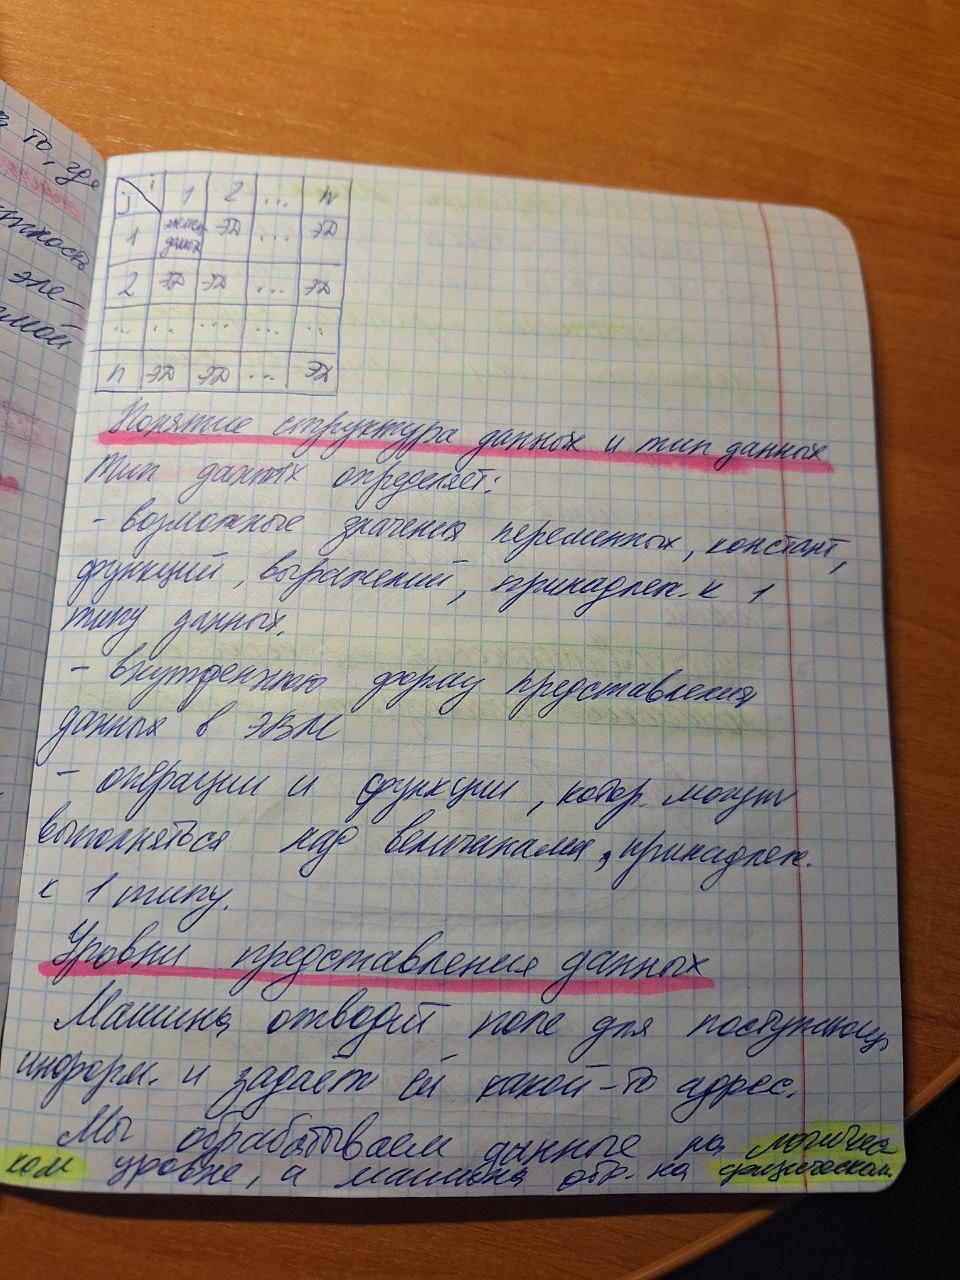 то, где
эле-
j i 1 2 ... n
1 элем. данных ЭД ... ЭД
2 ЭД ЭД ... ЭД
... ... ... ... ...
n ЭД ЭД ... ЭД
Понятие структура данных и тип данных
Тип данных определяет:
- возможные значения переменных, констант,
функций, выражений, принадлеж. к 1
типу данных.
- внутреннюю форму представления
данных в ЭВМ
- операции и функции, котор. могут
выполняться над величинами, принадлеж.
к 1 типу.
Уровни представления данных
Машина отводит поле для поступающ
информ. и задаёт ей какой-то адрес.
Мы обрабатываем данные на логичес-
ком уровне, а машина обр. на физическом